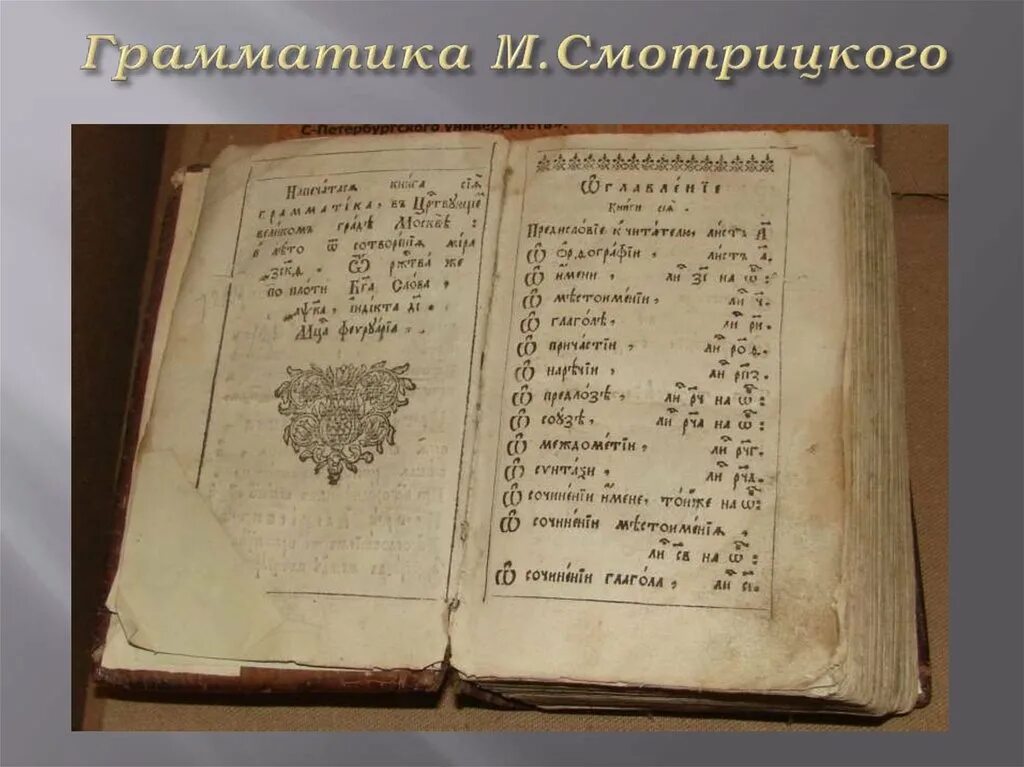 Грамматика М.Смотрицкого
С-Петербургского университета».
Напечатася книга сїѧ҄
грамматїка, въ Црⷭ҇твующеⷨ
великомъ градѣ Москвѣ :
в лѣто ѿ сотворенїѧ мїра
҂зскѳ . Ѿ ржⷭ҇тва же
по плоти Бг҃а Слова ,
҂аѱка , їндїкта дї .
Мцⷭ҇а феѵруарїа .
Ѡглавле́нїе
Книги сеѧ҄ .
Предисло́вїе к чита́телю, ли́стъ а҃
Ѿ ѻ҆рѳогра́фїи , ли́стъ а҃.
Ѿ и҆́мени , лиⷭ҇ зі҃ на ѿ :
Ѿ мѣстоиме́нїи , лиⷭ҇ ч҃.
Ѿ глаго́лѣ , лиⷭ҇ ри҃.
Ѿ прича́стїи , лиⷭ҇
Ѿ нарѣ́чїи , лиⷭ҇ рпз҃.
Ѿ предло́зѣ , лиⷭ҇ рч҃ на ѿ :
Ѿ сою́зѣ , лиⷭ҇ рча҃ на ѿ :
Ѿ междоме́тїи , лиⷭ҇ рчг҃.
Ѿ сѵнта́ѯи , лиⷭ҇ рчд҃.
Ѿ сочине́нїи и҆́мене, то́йже на ѿ :
Ѿ сочине́нїи мѣстоиме́нїѧ ,
лиⷭ҇ св҃ на ѿ :
Ѿ сочине́нїи глаго́ла , лиⷭ҇ сі҃.